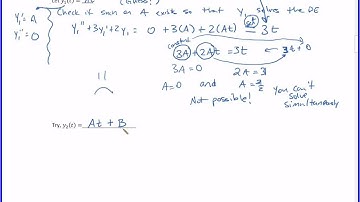 Check if such an A exists so that y₁ solves the DE
y₁' = A
y₁'' = 0
y₁'' + 3y₁' + 2y₁ = 0 + 3(A) + 2(At) = 3t
constant
3A + 2At = 3t
3t + 0
3A = 0
2A = 3
A = 0 and A = 3/2
Not possible!
you can't
solve
simultaneously
Try, y₂(t) = At + B